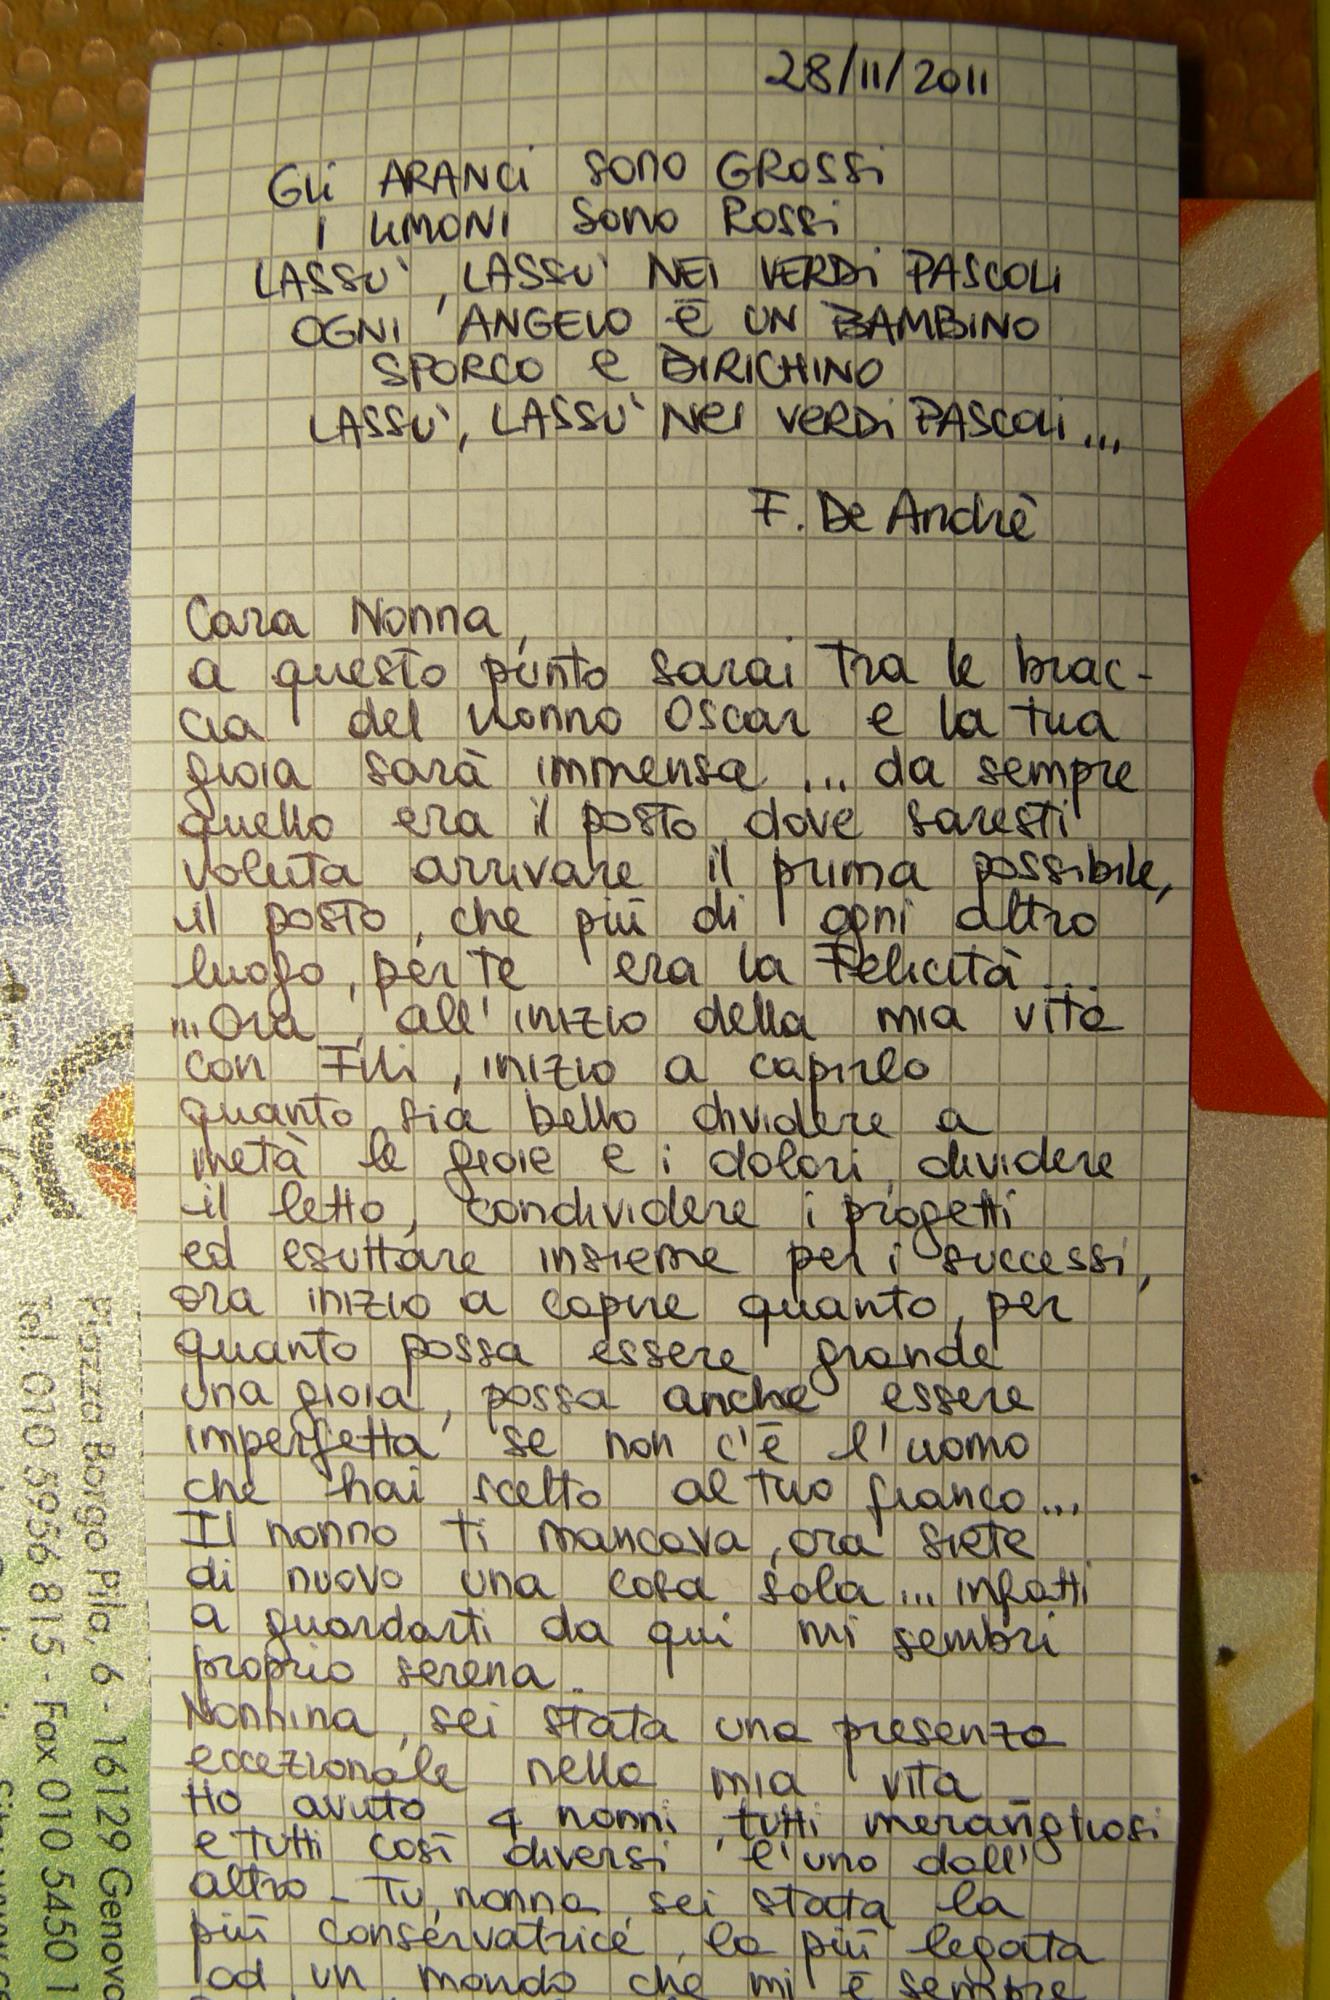 28/11/2011
Gli ARANCI SONO GROSSI
I LIMONI SONO ROSSI
LASSU', LASSU' NEI VERDI PASCOLI
OGNI ANGELO È UN BAMBINO
SPORCO E BIRICHINO
LASSU', LASSU' NEI VERDI PASCOLI...
F. De Andrè
Cara Nonna,
a questo punto sarai tra le brac-
cia del nonno Oscar e la tua
gioia sarà immensa ... da sempre
quello era il posto dove saresti
voluta arrivare il prima possibile,
il posto, che più di ogni altro
luogo, per te era la Felicità...
...Ora, all'inizio della mia vita
con Fili, inizio a capirlo
quanto sia bello dividere a
metà le gioie e i dolori, dividere
il letto, condividere i progetti
ed esultare insieme per i successi,
ora inizio a capire quanto, per
quanto possa essere grande
una gioia, possa anche essere
imperfetta se non c'è l'uomo
che hai scelto al tuo fianco...
Il nonno ti mancava, ora siete
di nuovo una cosa sola... infatti
a guardarti da qui mi sembri
proprio serena.
Nonnina, sei stata una presenza
eccezionale nella mia vita
Ho avuto 4 nonni, tutti meravigliosi
e tutti così diversi l'uno dall'
altro - Tu, nonna, sei stata la
più conservatrice, la più legata
ad un mondo che mi è sempre
Piazza Borgo Pila, 6 - 16129 Genova
Tel. 010 5956 815 - Fax 010 5450 1